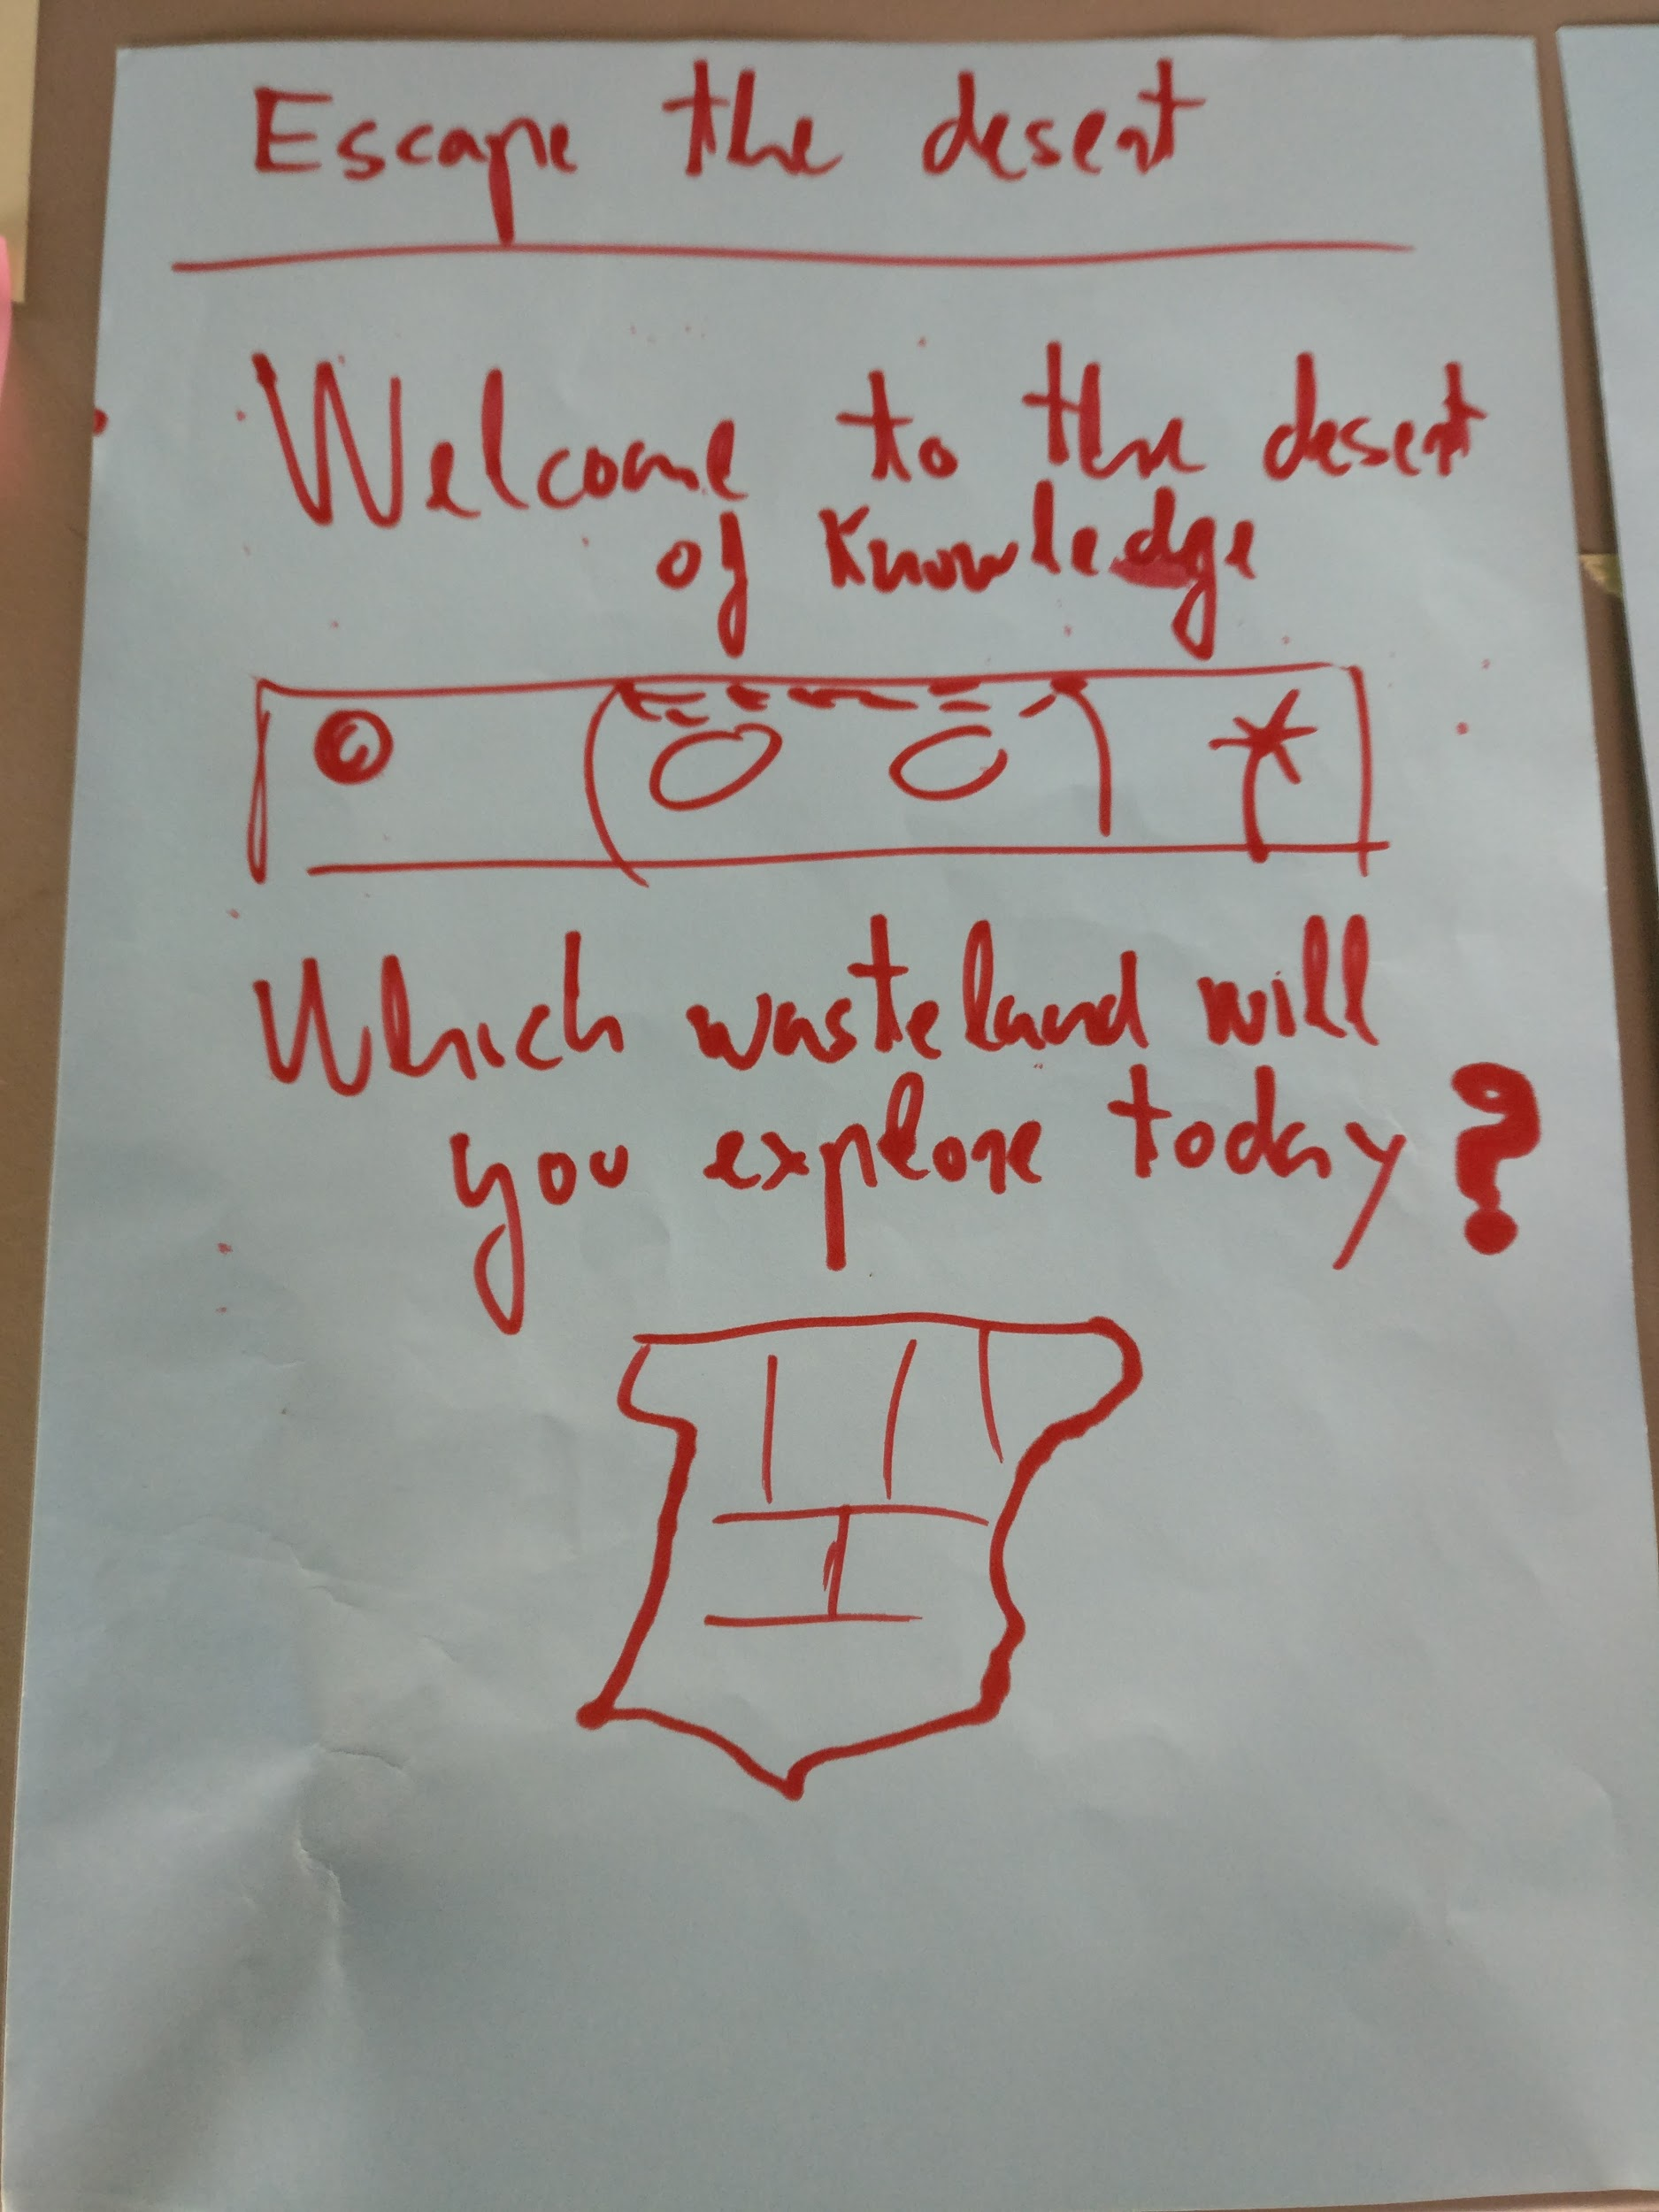 Escape the desert
Welcome to the desert
of Knowledge
Which wasteland will
you explore today?